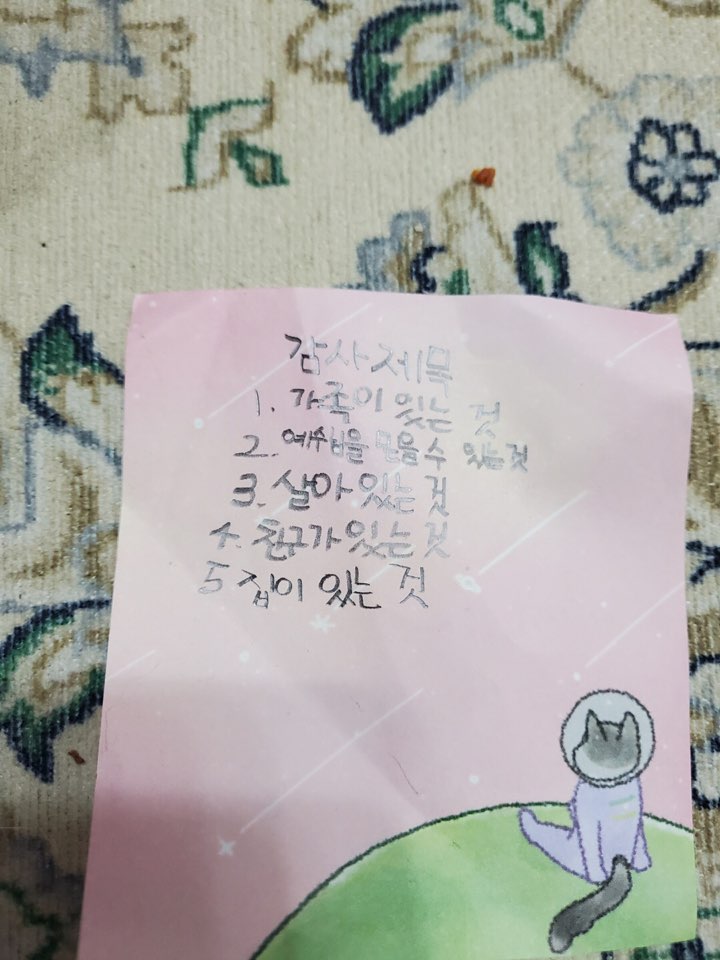 감사제목
1. 가족이 있는 것
2. 예수님을 믿을수 있는것
3. 살아 있는 것
4. 친구가 있는 것
5 집이 있는 것